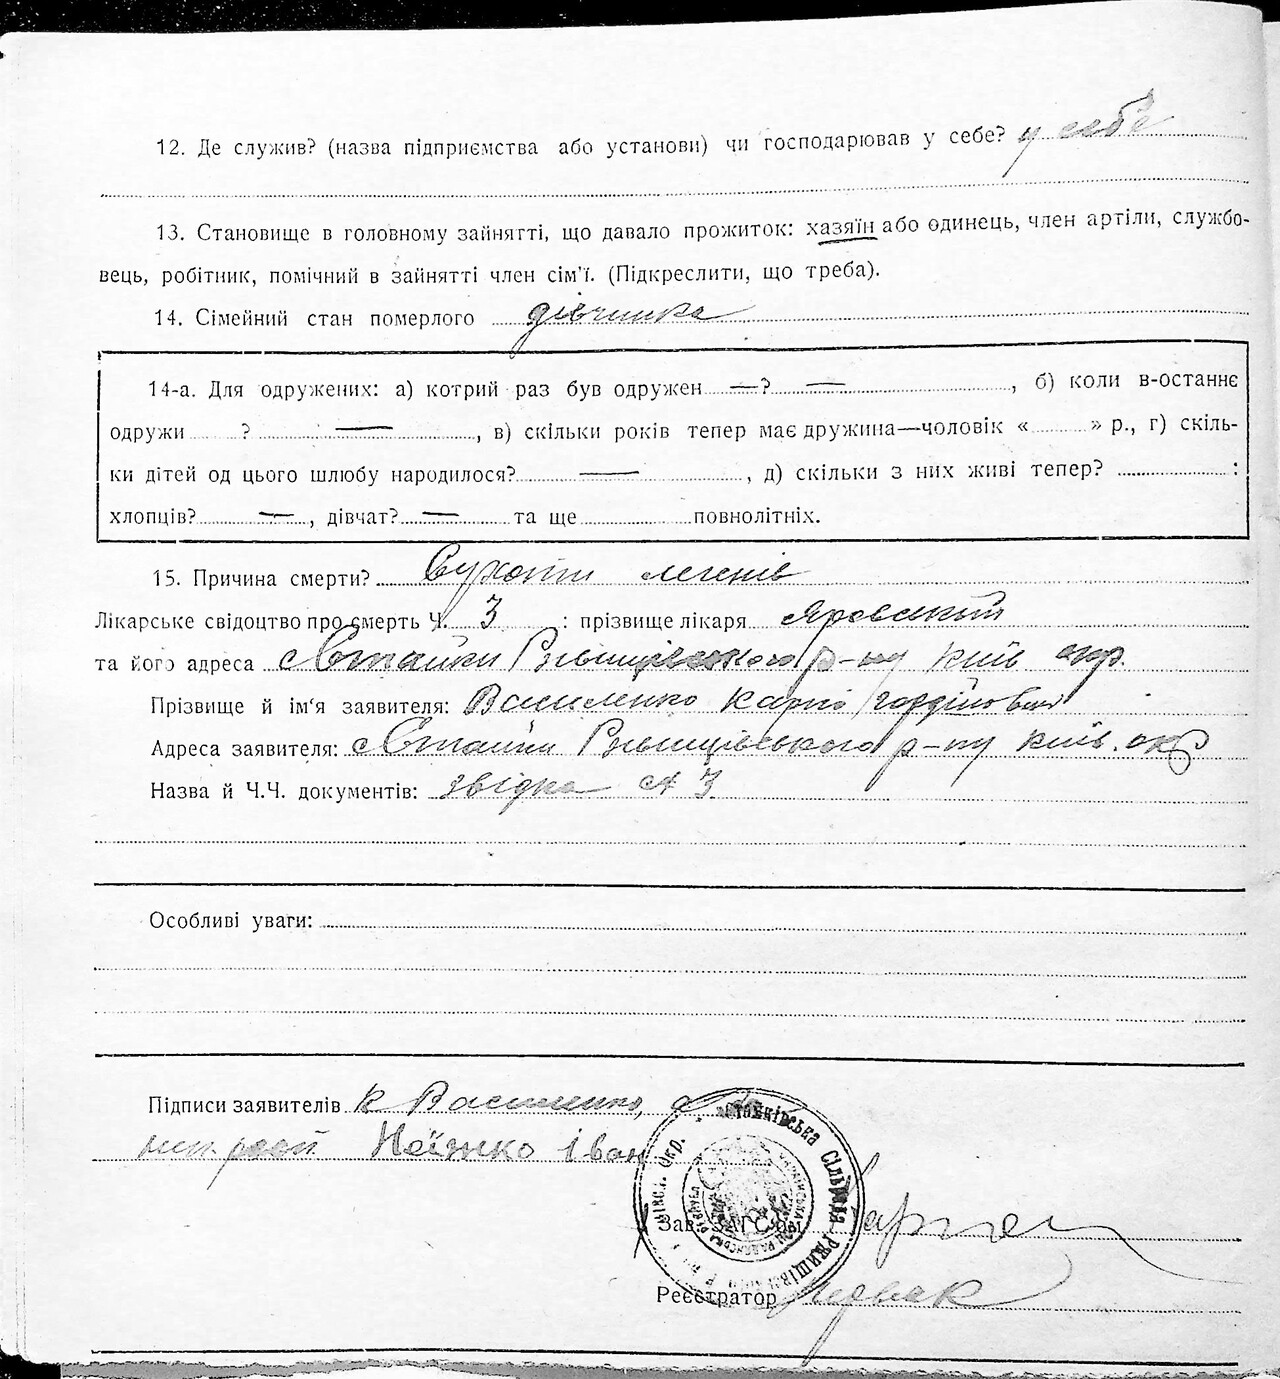 12. Де служив? (назва підприємства або установи) чи господарював у себе? у себе
13. Становище в головному зайнятті, що давало прожиток: хазяїн або одинець, член артіли, службо-
вець, робітник, помічний в зайнятті член сім'ї. (Підкреслити, що треба).
14. Сімейний стан померлого дівчинка
14-а. Для одружених: а) котрий раз був одружен —? —, б) коли в-останнє
одружи ? —, в) скільки років тепер має дружина—чоловік « » р., г) скіль-
ки дітей од цього шлюбу народилося? —, д) скільки з них живі тепер? :
хлопців? —, дівчат? — та ще повнолітніх.
15. Причина смерти? Сухоти легенів
Лікарське свідоцтво про смерть Ч. 3 : прізвище лікаря Яровський
та його адреса с Стайки Ржищівського р-ну Київ окр.
Прізвище й ім'я заявителя: Василенко Карпо Гордійович
Адреса заявителя: с Стайки Ржищівського р-ну Київ. окр
Назва й Ч.Ч. документів: звідка № 3
Особливі уваги:
Підписи заявителів К Василенко,
Неїжко Іван
Стайківська Сільрада Ржищівськ
Зав. ЗАГС'ом
Реєстратор